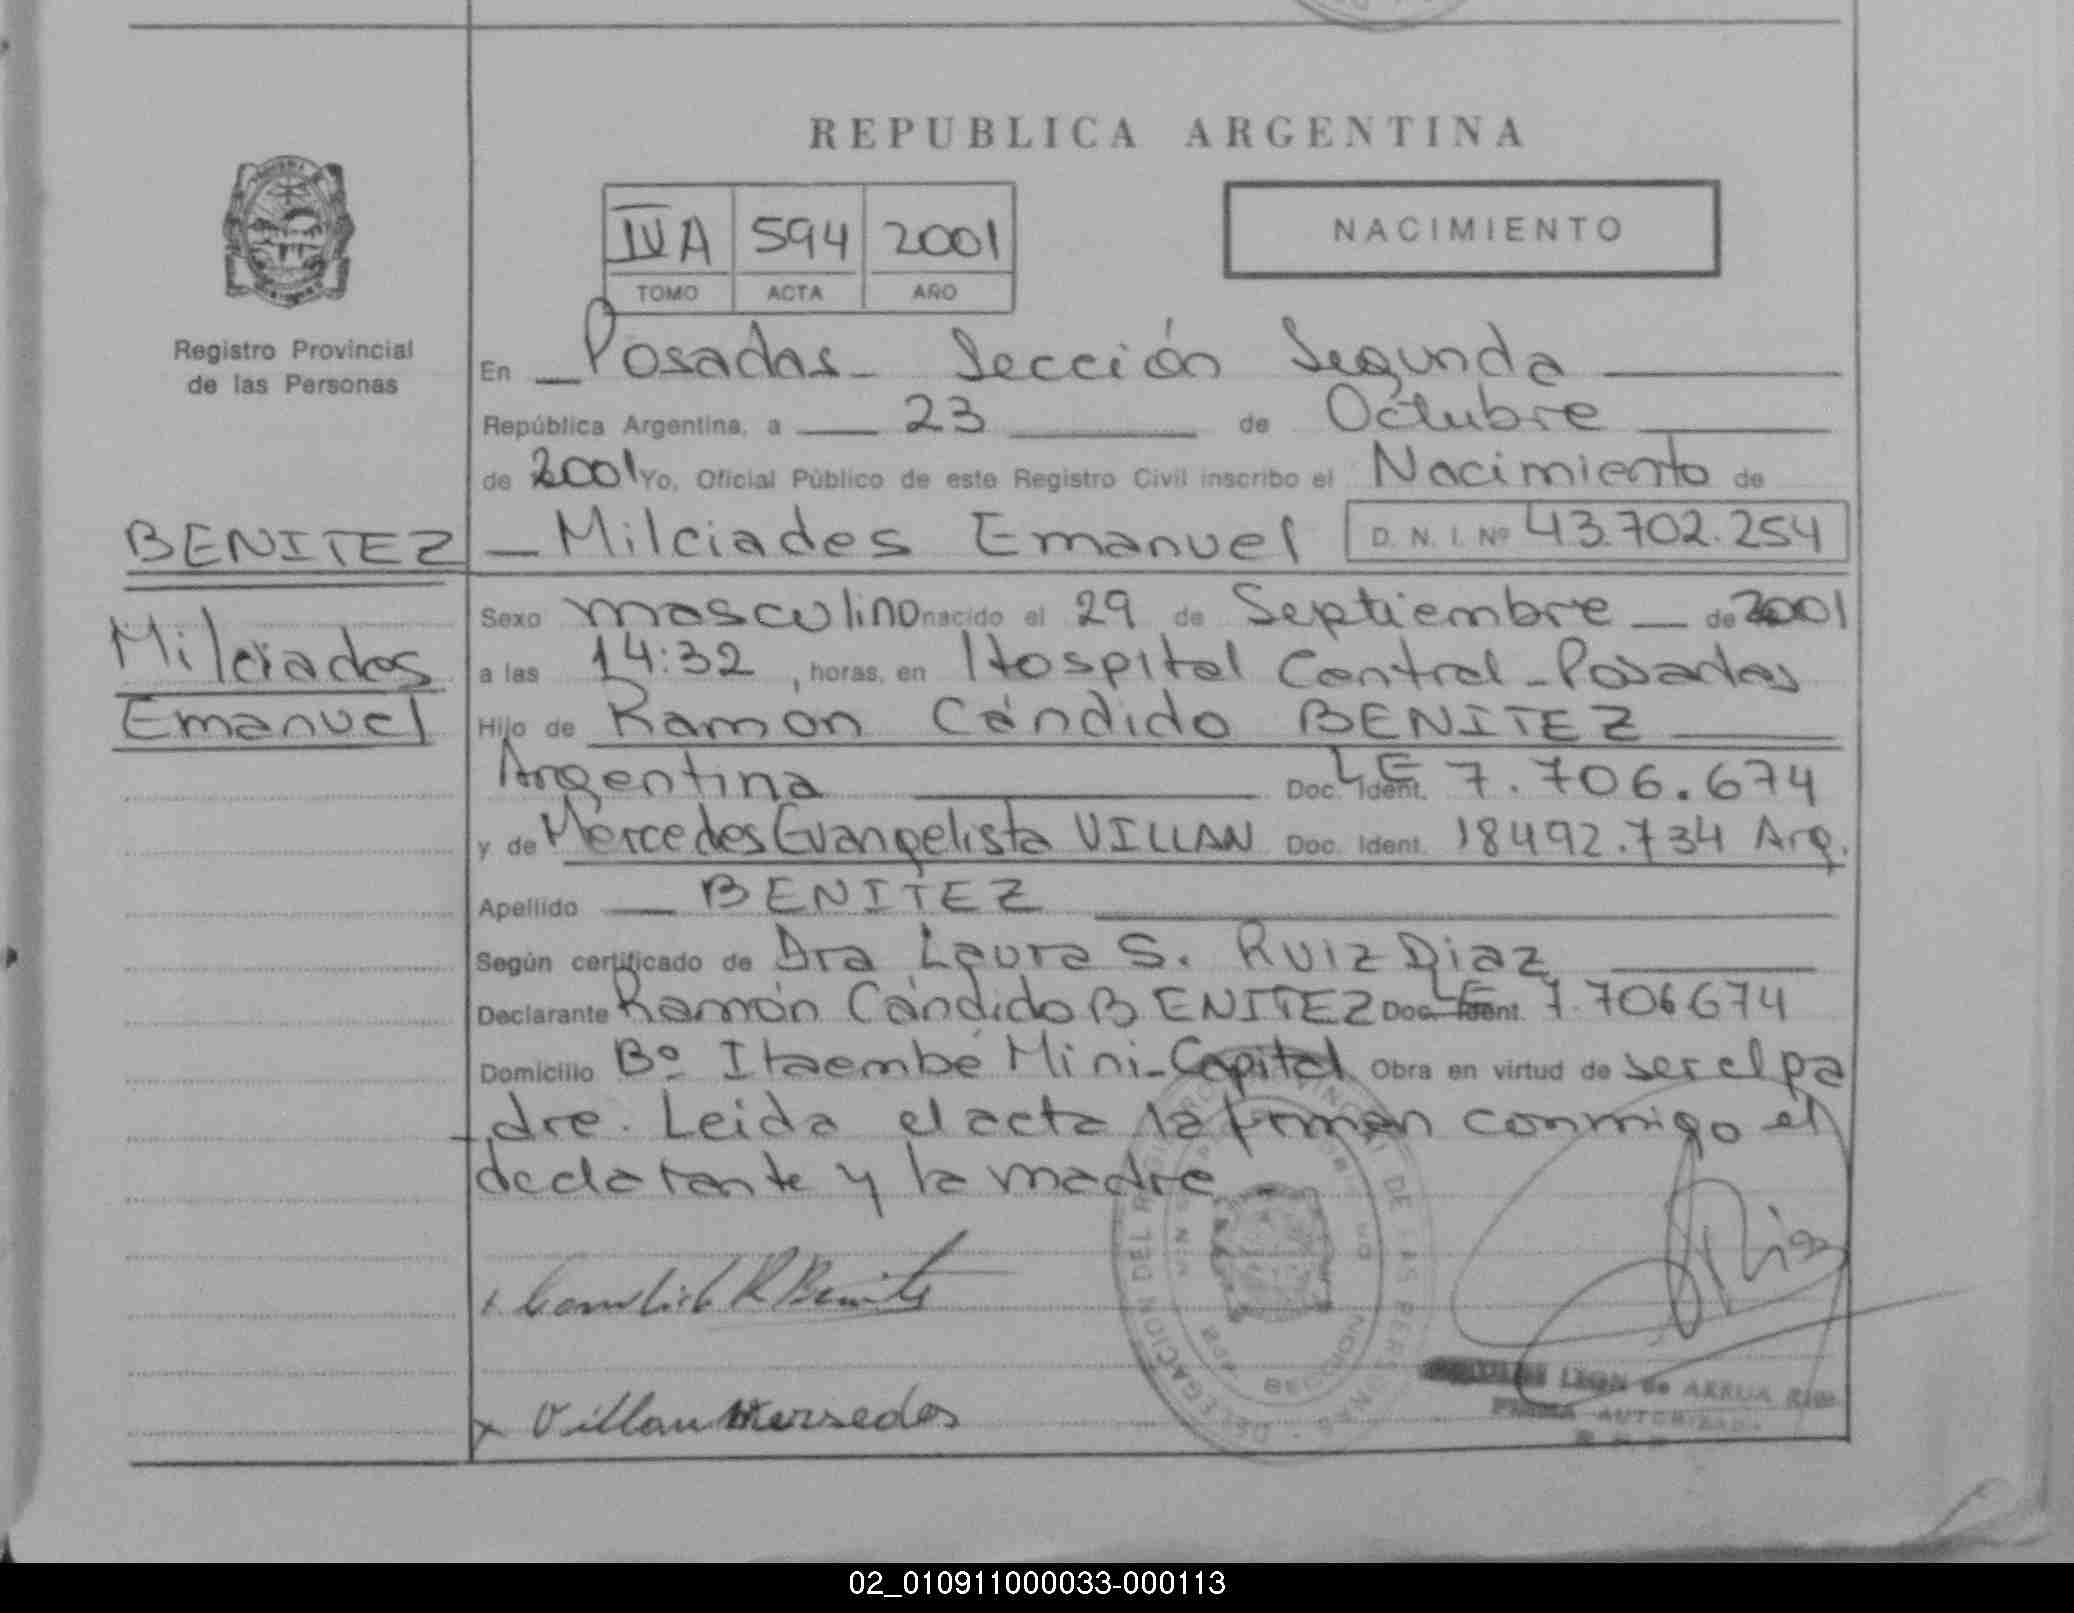 REPUBLICA ARGENTINA
IVA 594 2001
TOMO ACTA AÑO
NACIMIENTO
Registro Provincial
de las Personas
En Posadas - Sección Segunda
República Argentina, a 23 de Octubre
de 2001 Yo, Oficial Público de este Registro Civil inscribo el Nacimiento de
BENITEZ
Milciades Emanuel D. N. I. Nº 43.702.254
Milciades
Emanuel
Sexo masculino nacido el 29 de Septiembre de 2001
a las 14:32, horas, en Hospital Central - Posadas
Hijo de Ramon Cándido BENITEZ
Argentina Doc. Ident. LE 7.706.674
y de Mercedes Evangelista VILLAN Doc. Ident. 18492.734 Arg.
Apellido BENITEZ
Según certificado de Dra Laura S. Ruiz Diaz
Declarante Ramón Cándido BENITEZ Doc. Ident. LE 7.706674
Domicilio Bº Itaembé Mini - Capital Obra en virtud de ser el pa
dre. Leida el acta la firman conmigo el
declarante y la madre
Villan Mersedes
DELEGACION DEL REGISTRO PROVINCIAL DE LAS PERSONAS
LEON de ARRUA
FIRMA AUTORIZADA
02_010911000033-000113